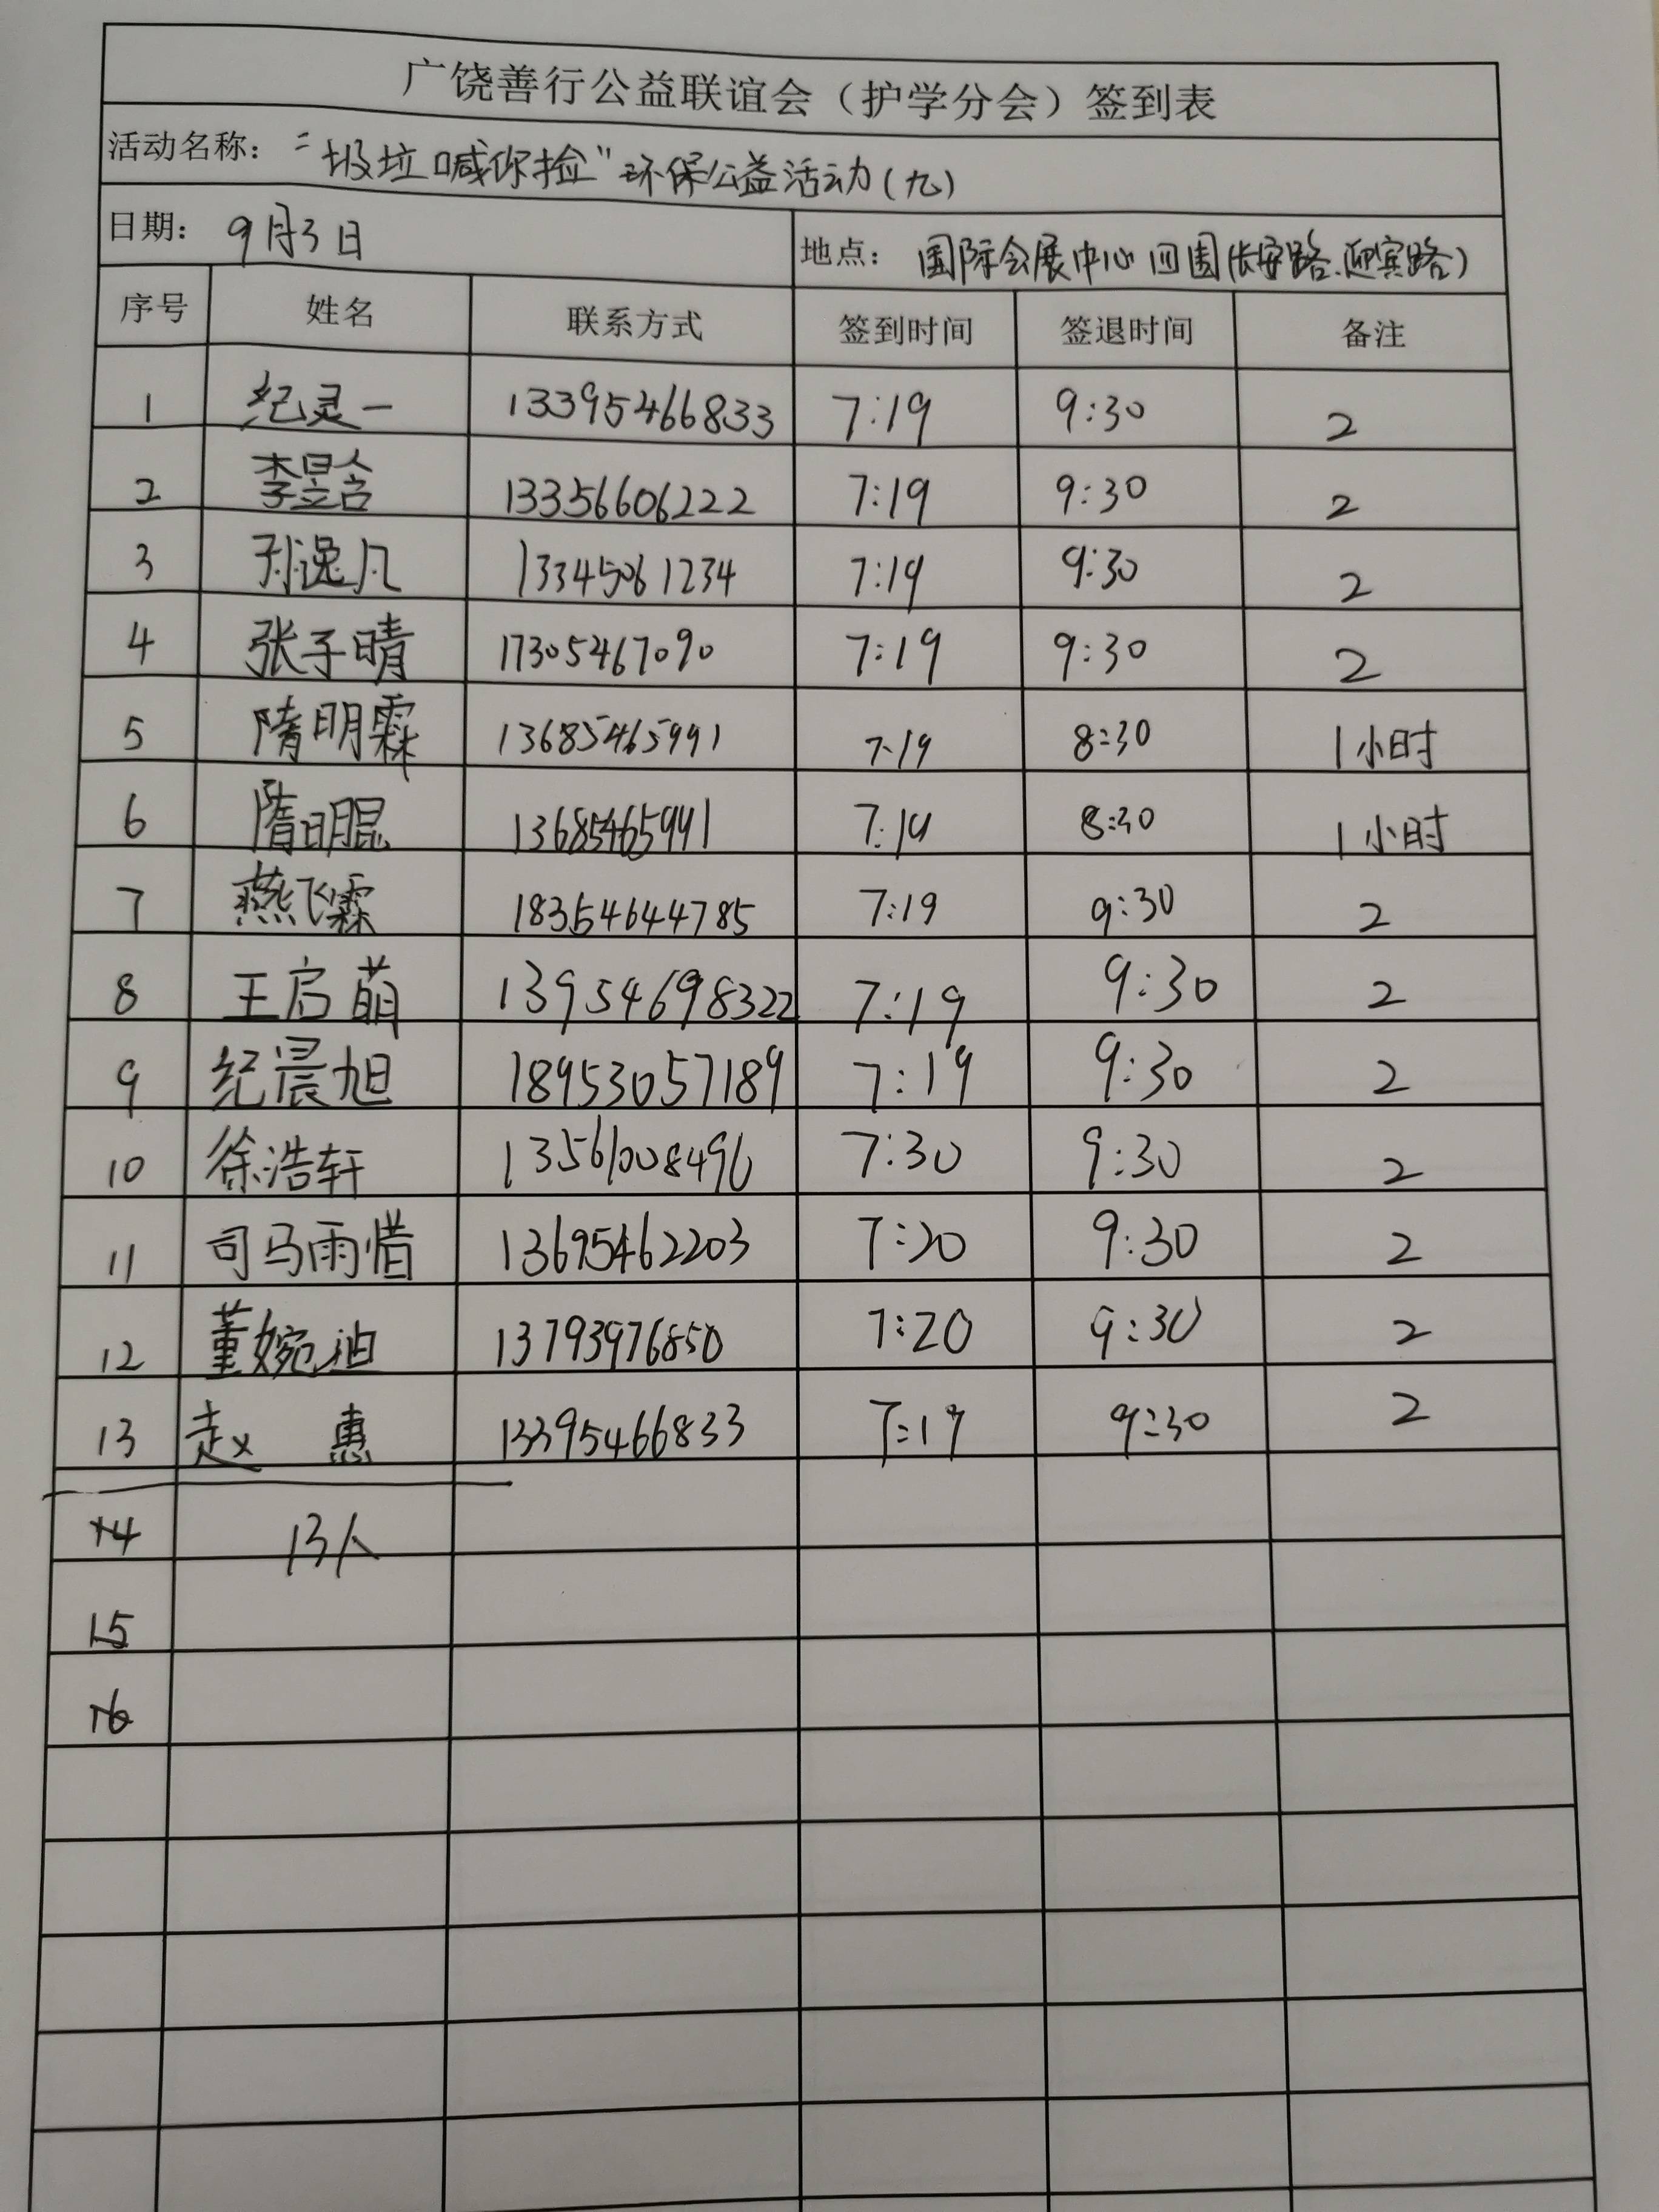 广饶善行公益联谊会（护学分会）签到表
活动名称："垃圾喊你捡"环保公益活动(九)
日期：9月3日 地点：国际会展中心四围(长安路、迎宾路)
序号 姓名 联系方式 签到时间 签退时间 备注
1 纪灵一 13395466833 7:19 9:30 2
2 李昱含 13356606222 7:19 9:30 2
3 孙逸凡 13345061234 7:19 9:30 2
4 张子晴 17305467090 7:19 9:30 2
5 隋明霖 13685465991 7:19 8:30 1小时
6 隋明昆 13685465991 7:19 8:30 1小时
7 燕飞霖 18354644785 7:19 9:30 2
8 王启萌 13954698322 7:19 9:30 2
9 纪晨旭 18953057189 7:19 9:30 2
10 徐浩轩 13561008496 7:30 9:30 2
11 司马雨惜 13695462203 7:20 9:30 2
12 董婉迪 13793976850 7:20 9:30 2
13 赵惠 13395466833 7:19 9:30 2
14 13人
15
16